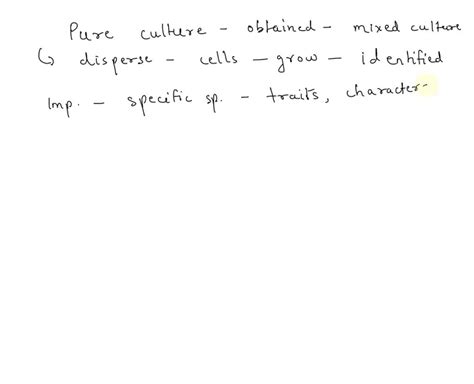 Pure culture - obtained - mixed culture
↳ disperse - cells - grow - identified
Imp. - specific sp. - traits, character-